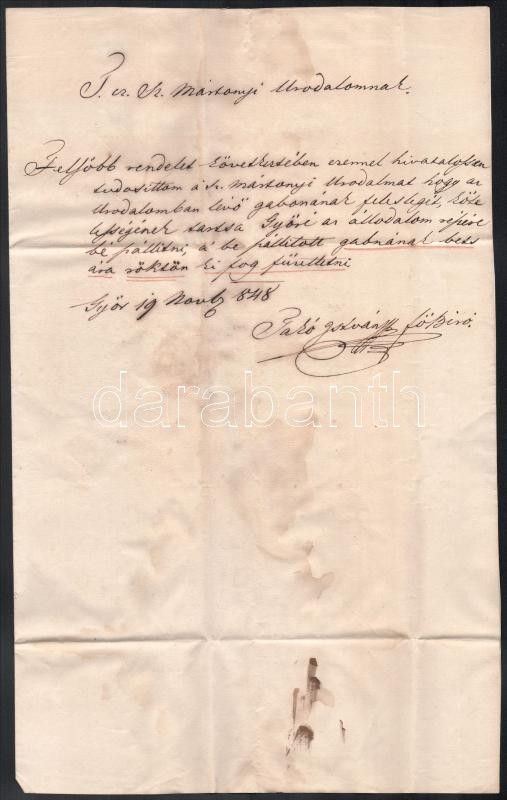 T. cz. Sz. Mártonyi Urodalomnak.
Felsőbb rendelet következtében ezennel hivatalossen
tudosittom á Sz. Mártonyi Urodalmat hogy az
Urodalomban lévő gabonának feleslegit, köte
lességének tartsa Győré az álladalom részére
bé szállitni, á bé szállitott gabnának bets
ára röktön ki fog fizettetni
Győr 19 Novb 848
István főbiró.
darabanth